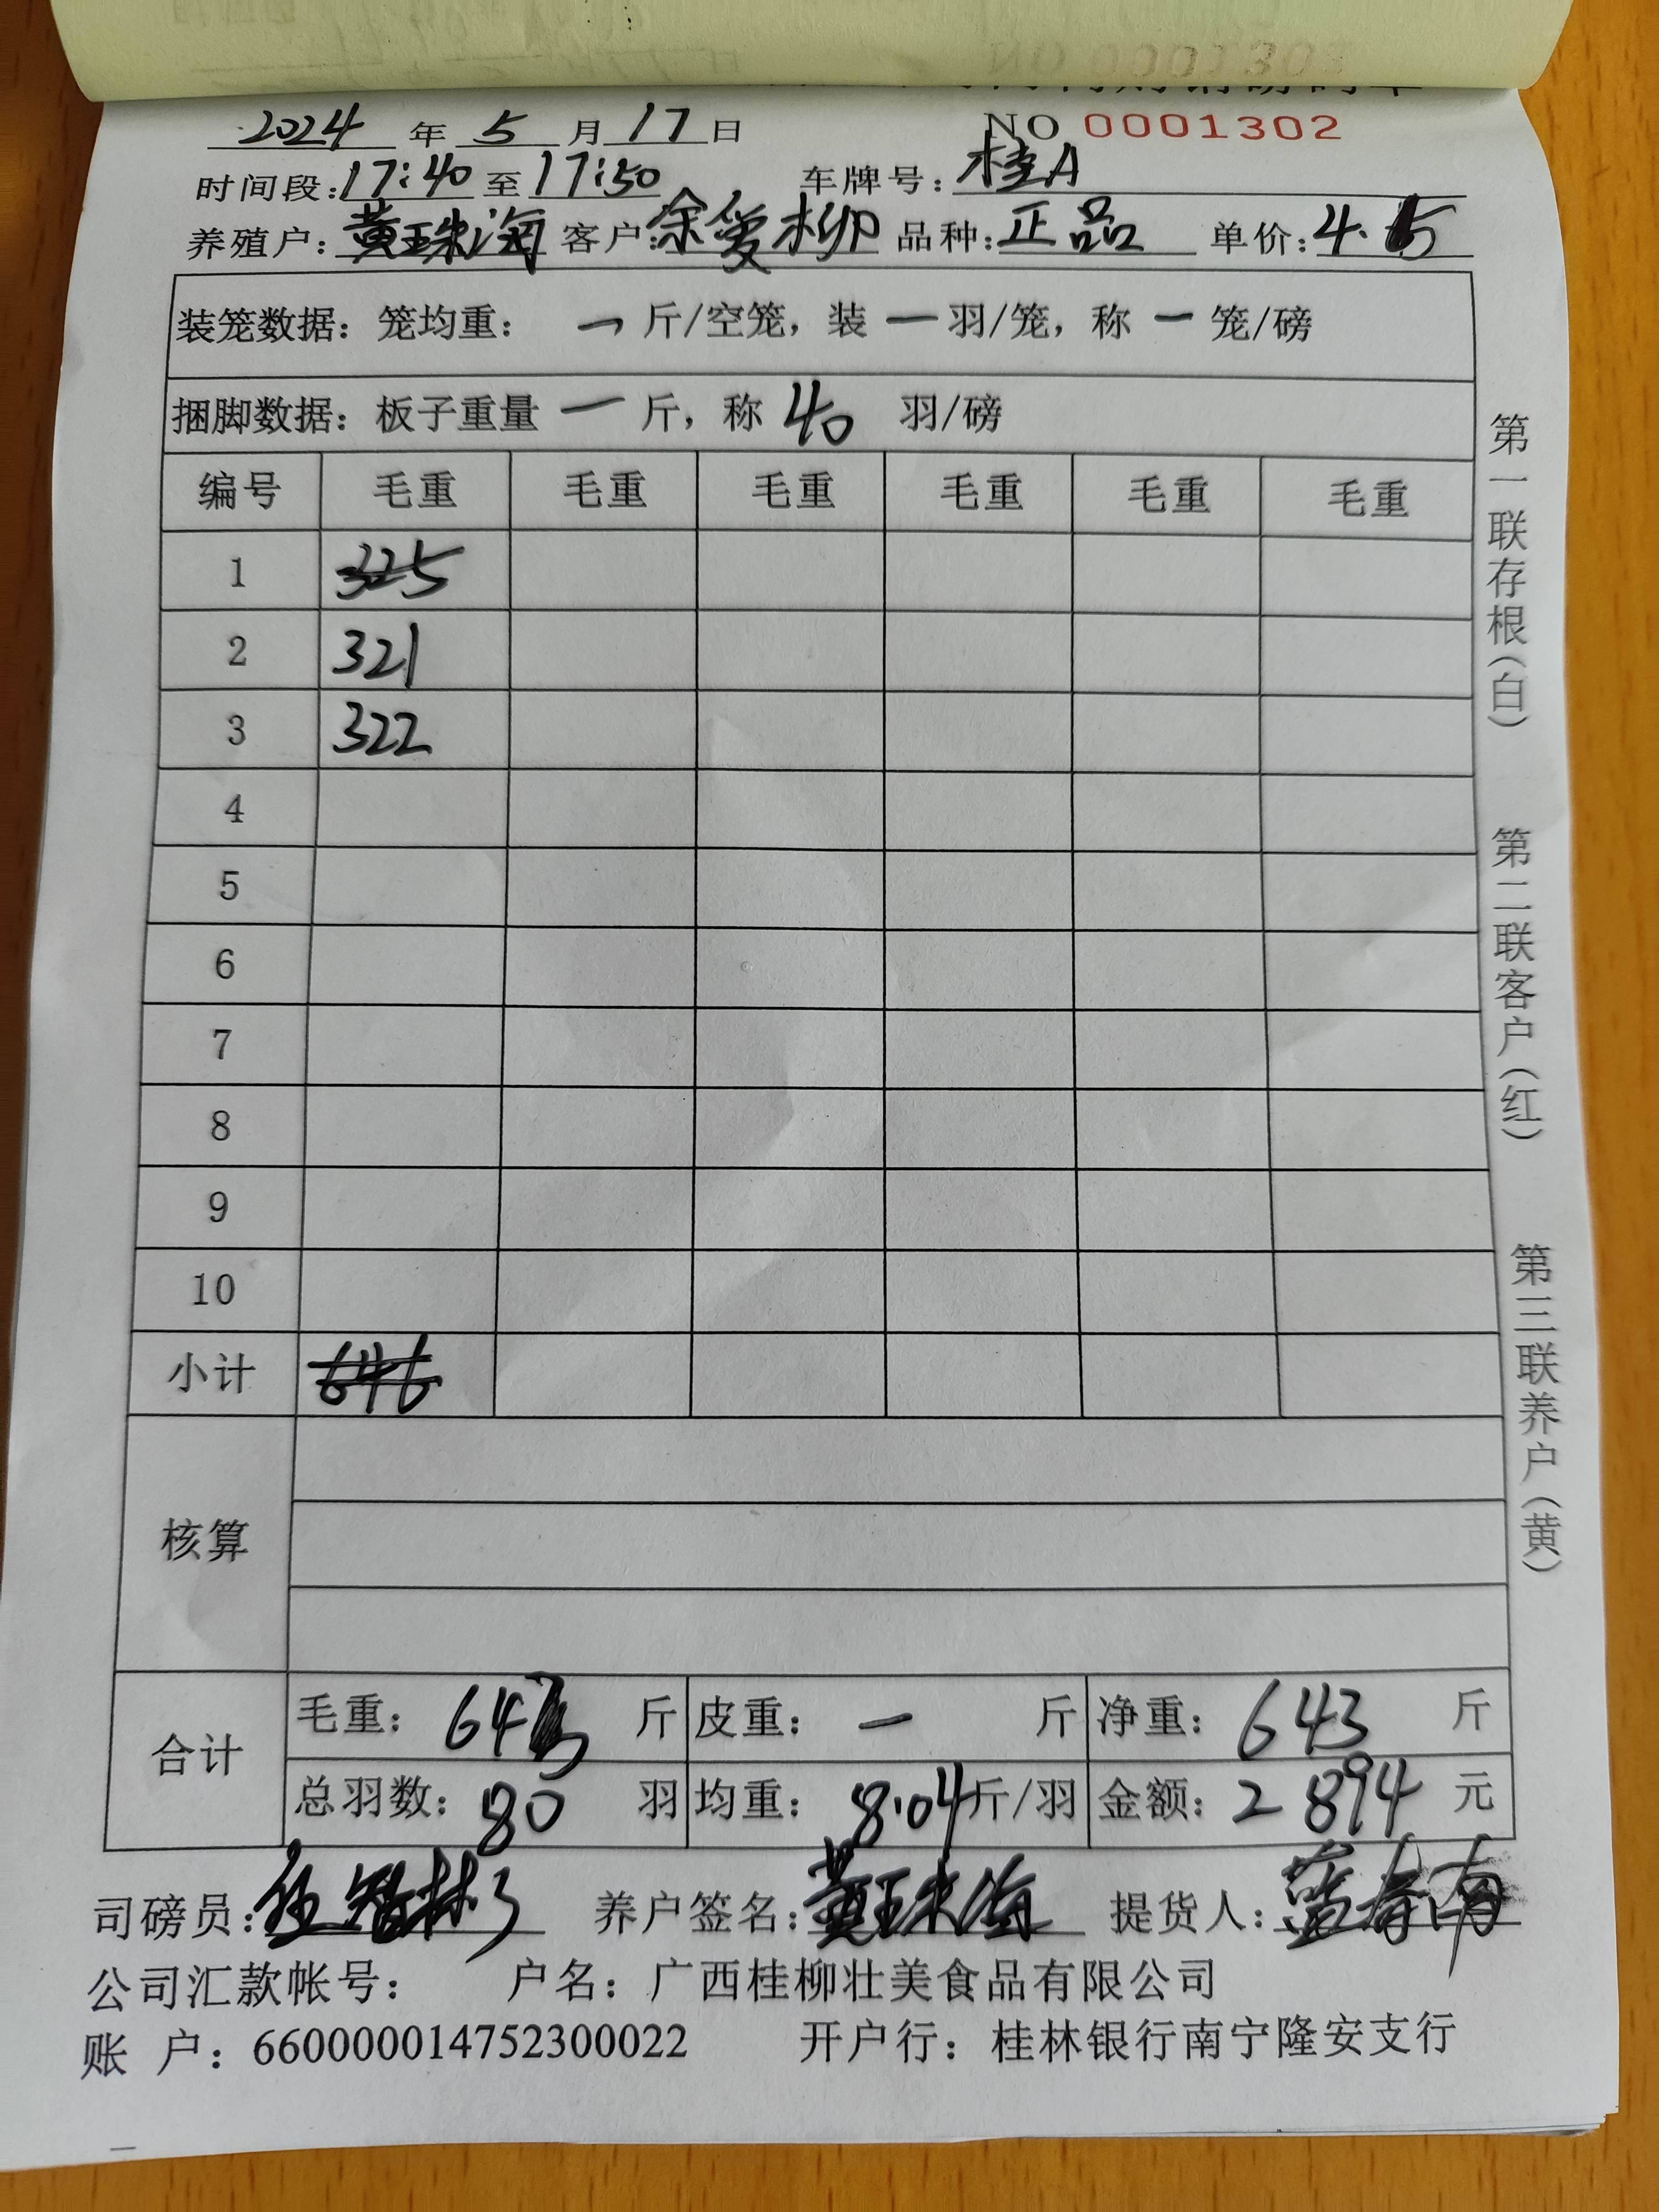 NO 0001303
2024 年 5 月 17 日 NO 0001302
时间段:17:40 至 17:50 车牌号:桂A
养殖户:黄珠海 客户:余爱柳 品种:正品 单价:4.5
装笼数据:笼均重: 一 斤/空笼,装 一 羽/笼,称 一 笼/磅
捆脚数据:板子重量 一 斤,称 40 羽/磅
编号 毛重 毛重 毛重 毛重 毛重 毛重
1 325
2 321
3 322
4
5
6
7
8
9
10
小计 646
核算
合计
毛重: 643 斤 皮重: 一 斤 净重: 643 斤
总羽数: 80 羽 均重: 8.04 斤/羽 金额: 2894 元
司磅员: 养户签名:黄珠海 提货人:
公司汇款帐号: 户名:广西桂柳壮美食品有限公司
账 户:660000014752300022 开户行:桂林银行南宁隆安支行
第一联存根(白)
第二联客户(红)
第三联养户(黄)